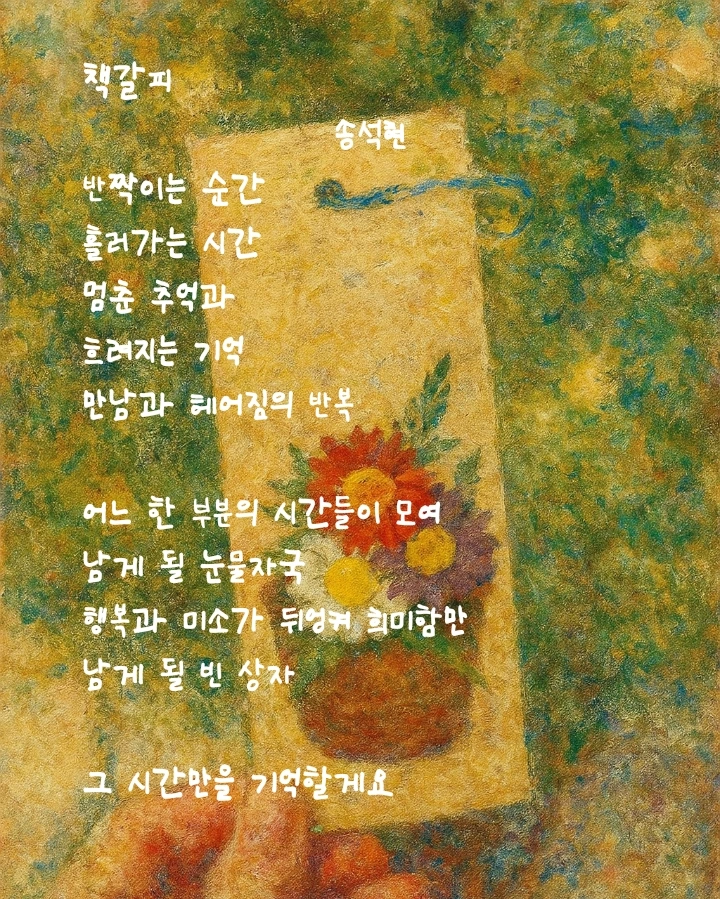 책갈피
송석련
반짝이는 순간
흘러가는 시간
멈춘 추억과
흐려지는 기억
만남과 헤어짐의 반복
어느 한 부분의 시간들이 모여
남게 될 눈물자국
행복과 미소가 뒤엉켜 희미함만
남게 될 빈 상자
그 시간만을 기억할게요